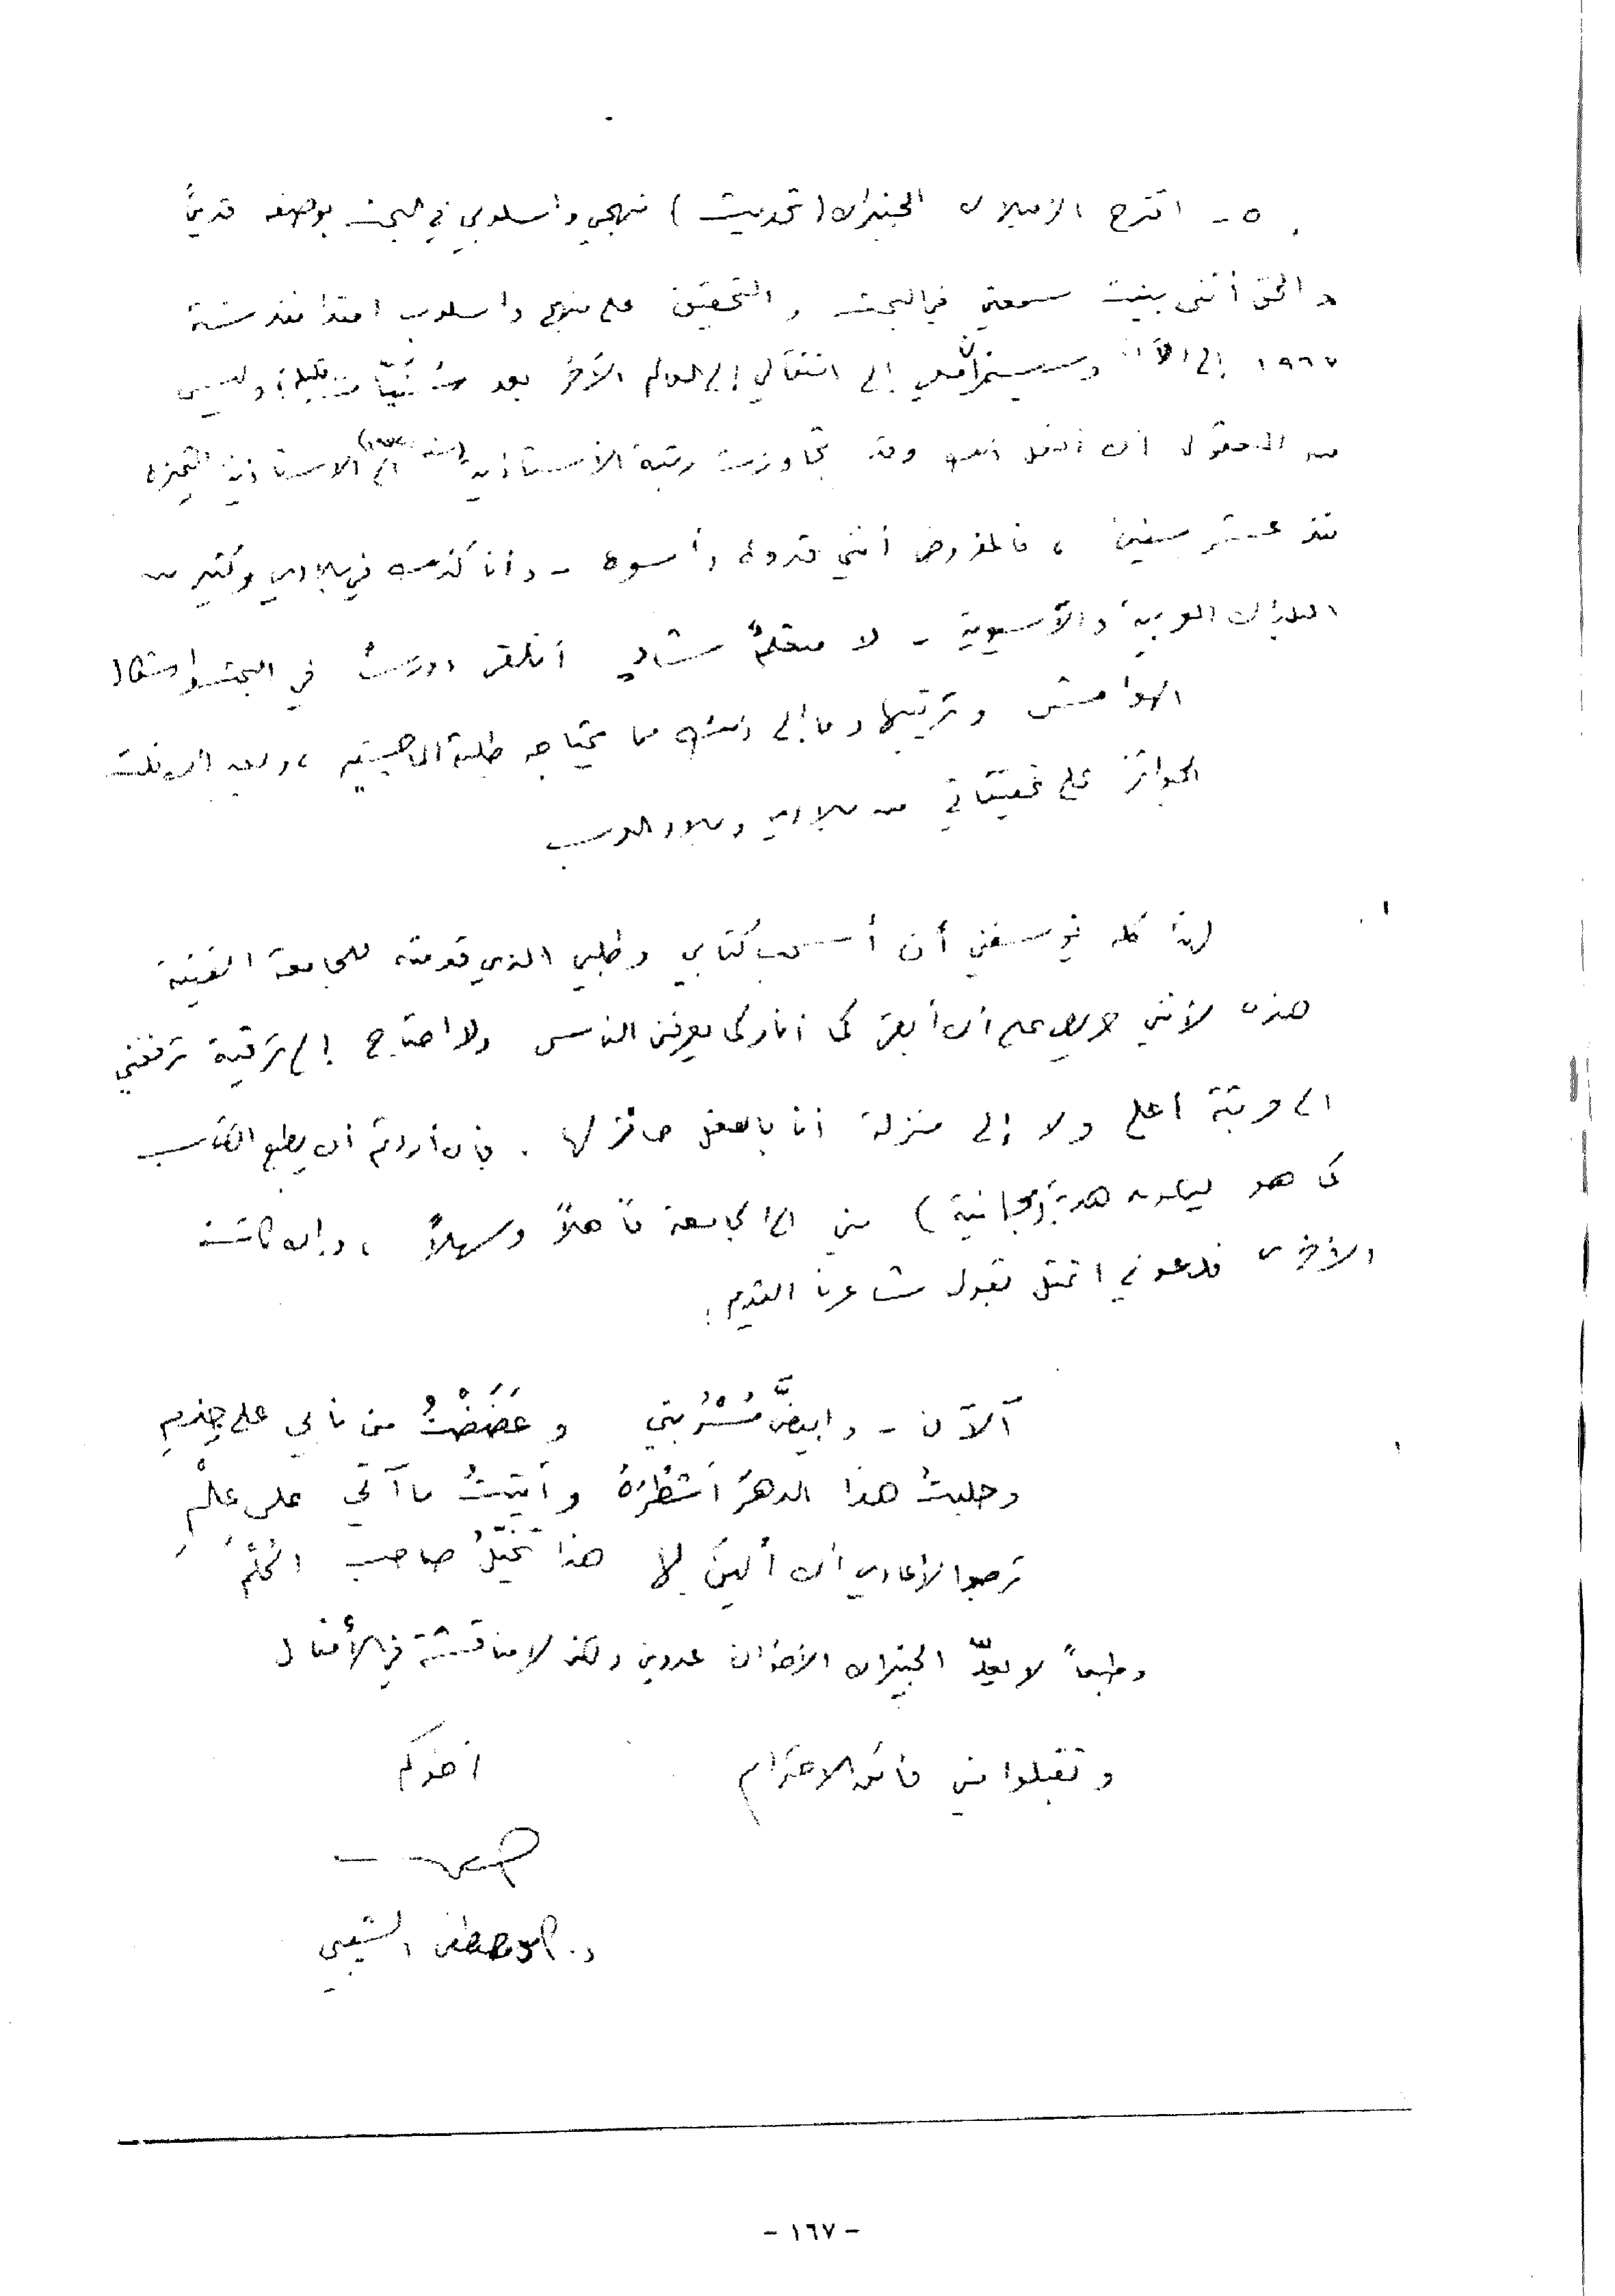 ٥ - اقترح الزميلان الخبيران (تحديث) منهجي وأسلوبي في البحث بوصفه قديماً
والحق أنني بنيت سمعتي في البحث والتحقيق على منهج وأسلوب امتدا منذ سنة
١٩٦٧ إلى الآن وسيستمران معي إلى انتقالي إلى العالم الآخر بعد سُنَيّات قليلة، وليس
من المعقول أن أفعل ذلك وقد تجاوزت رتبة الأستاذية (سنة) إلى الاستاذية المتميزة
منذ عشر سنين ، فالمفروض أنني قدوة وأسوة - وأنا كذلك في بلادي وكثير من
البلدان العربية والآسيوية - لا متعلمٌ شادٍ أتلقى دورساً في البحث واستعمال
الهوامش وترتيبها وما إلى ذلك مما يحتاجه طلبة الماجستير ، وبعد أن نلت
الجوائز على تحقيقاتي من بلادي وبلاد العرب
لهذا كله يؤسفني أن أسحب كتابي وطلبي الذي قدمته للجامعة الفتية
هذه لأنني حريص على أن أبقى كما أنا وكما يعرفني الناس ولا أحتاج إلى ترقية ترفعني
إلى مرتبة أعلى ولا إلى منزلة أنا بالفعل حائز لها . فإن أردتم أن يطبع الكتاب
كما هو ليكون هدية (مجانية) مني إلى الجامعة فأهلاً وسهلاً ، وإن كانت
الأخرى فدعوني أتمثل بقول شاعرنا القديم :
آلآن - وابيضَّ مَسْرُبتي وعَضَضْتُ من نابي على جِذمِ
وحلبتُ هذا الدهرَ أشطُرَهُ وأتيتُ ما آتي على عِلْمِ
ترجوا الأعادي أن ألينَ لها هذا تخيّلُ صاحب الحُلْمِ
وطبعاً لا يعدّ الخبيران الأخوان عدوين ولكن لا مناقشة في الأمثال
وتقبلوا مني فائق الاحترام أخوكم
د. كامل مصطفى الشيبي
- ١٦٧ -